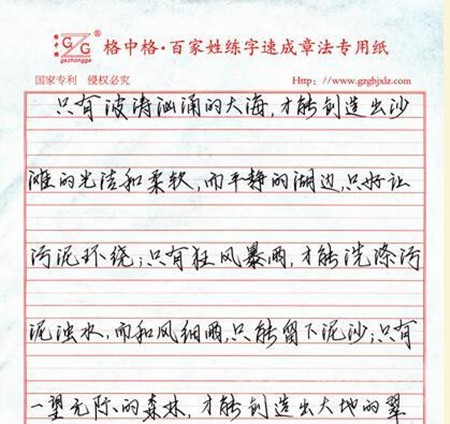 GZG
gezhongge
格中格·百家姓练字速成章法专用纸
国家专利 侵权必究
Http://www.gzgbjxlz.com
只有波涛汹涌的大海,才能创造出沙
滩的光洁和柔软,而平静的湖边,只好让
污泥环绕;只有狂风暴雨,才能洗涤污
泥浊水,而和风细雨,只能留下泥沙;只有
一望无际的森林,才能创造出大地的翠